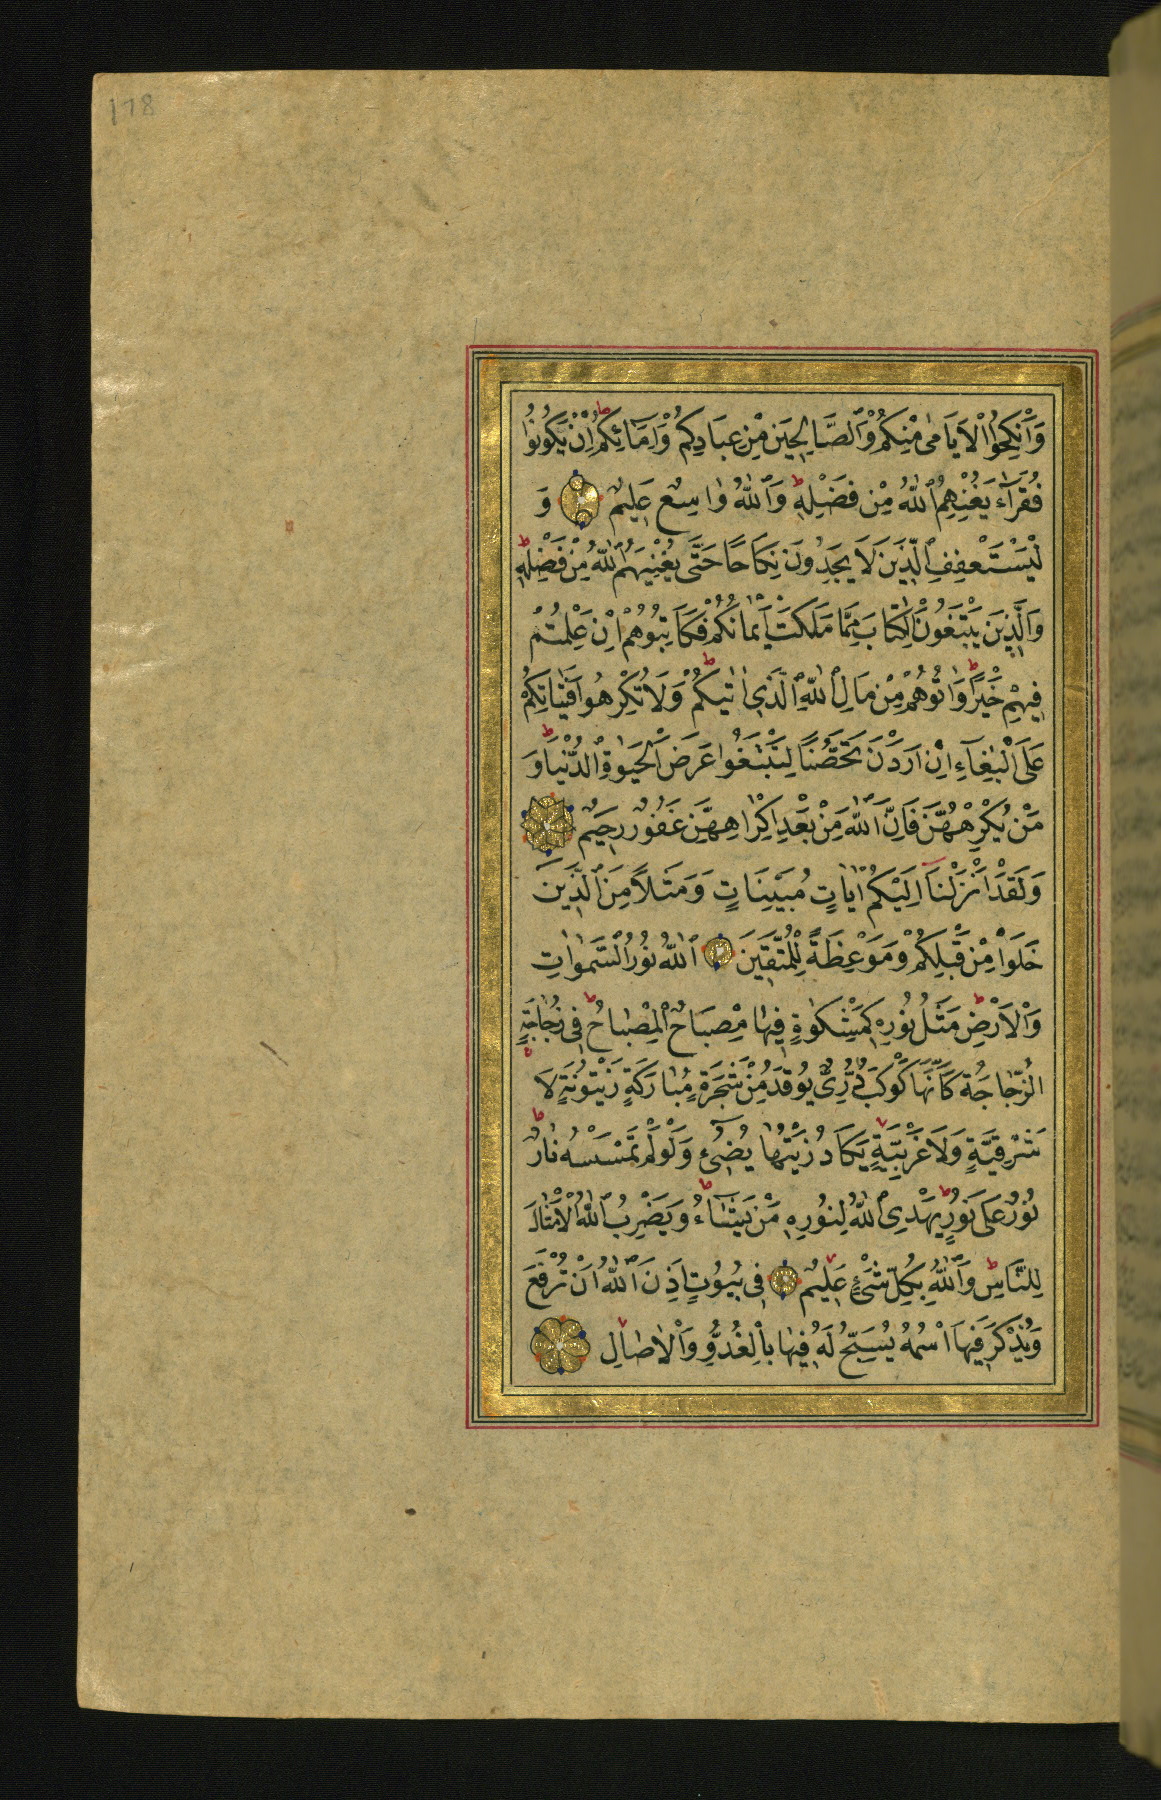 178
وَأَنْكِحُوا الْاَيَامٰى مِنْكُمْ وَالصَّالِحِينَ مِنْ عِبَادِكُمْ وَاِمَائِكُمْ ط اِنْ يَكُونُوا
فُقَرَآءَ يُغْنِهِمُ اللّٰهُ مِنْ فَضْلِهِ ط وَاللّٰهُ وَاسِعٌ عَلِيمٌ وَ
لْيَسْتَعْفِفِ الَّذِينَ لَا يَجِدُونَ نِكَاحًا حَتّٰى يُغْنِيَهُمُ اللّٰهُ مِنْ فَضْلِهِ ط
وَالَّذِينَ يَبْتَغُونَ الْكِتَابَ مِمَّا مَلَكَتْ اَيْمَانُكُمْ فَكَاتِبُوهُمْ اِنْ عَلِمْتُمْ
فِيهِمْ خَيْرًا ط وَاٰتُوهُمْ مِنْ مَالِ اللّٰهِ الَّذِي اٰتٰيكُمْ ط وَلَا تُكْرِهُوا فَتَيَاتِكُمْ
عَلَى الْبِغَآءِ اِنْ اَرَدْنَ تَحَصُّنًا لِتَبْتَغُوا عَرَضَ الْحَيٰوةِ الدُّنْيَا ط وَ
مَنْ يُكْرِهْهُنَّ فَاِنَّ اللّٰهَ مِنْ بَعْدِ اِكْرَاهِهِنَّ غَفُورٌ رَحِيمٌ
وَلَقَدْ اَنْزَلْنَآ اِلَيْكُمْ اٰيَاتٍ مُبَيِّنَاتٍ وَمَثَلًا مِنَ الَّذِينَ
خَلَوْا مِنْ قَبْلِكُمْ وَمَوْعِظَةً لِلْمُتَّقِينَ اَللّٰهُ نُورُ السَّمٰوَاتِ
وَالْاَرْضِ ط مَثَلُ نُورِهِ كَمِشْكٰوةٍ فِيهَا مِصْبَاحٌ الْمِصْبَاحُ ط فِي زُجَاجَةٍ
الزُّجَاجَةُ كَاَنَّهَا كَوْكَبٌ دُرِّيٌّ يُوقَدُ مِنْ شَجَرَةٍ مُبَارَكَةٍ زَيْتُونَةٍ لَا
شَرْقِيَّةٍ وَلَا غَرْبِيَّةٍ يَكَادُ زَيْتُهَا يُضِيٓءُ وَلَوْ لَمْ تَمْسَسْهُ نَارٌ ط
نُورٌ عَلٰى نُورٍ ط يَهْدِي اللّٰهُ لِنُورِهِ مَنْ يَشَآءُ ط وَيَضْرِبُ اللّٰهُ الْاَمْثَالَ
لِلنَّاسِ ط وَاللّٰهُ بِكُلِّ شَيْءٍ عَلِيمٌ فِي بُيُوتٍ اَذِنَ اللّٰهُ اَنْ تُرْفَعَ
وَيُذْكَرَ فِيهَا اسْمُهُ يُسَبِّحُ لَهُ فِيهَا بِالْغُدُوِّ وَالْاٰصَالِ